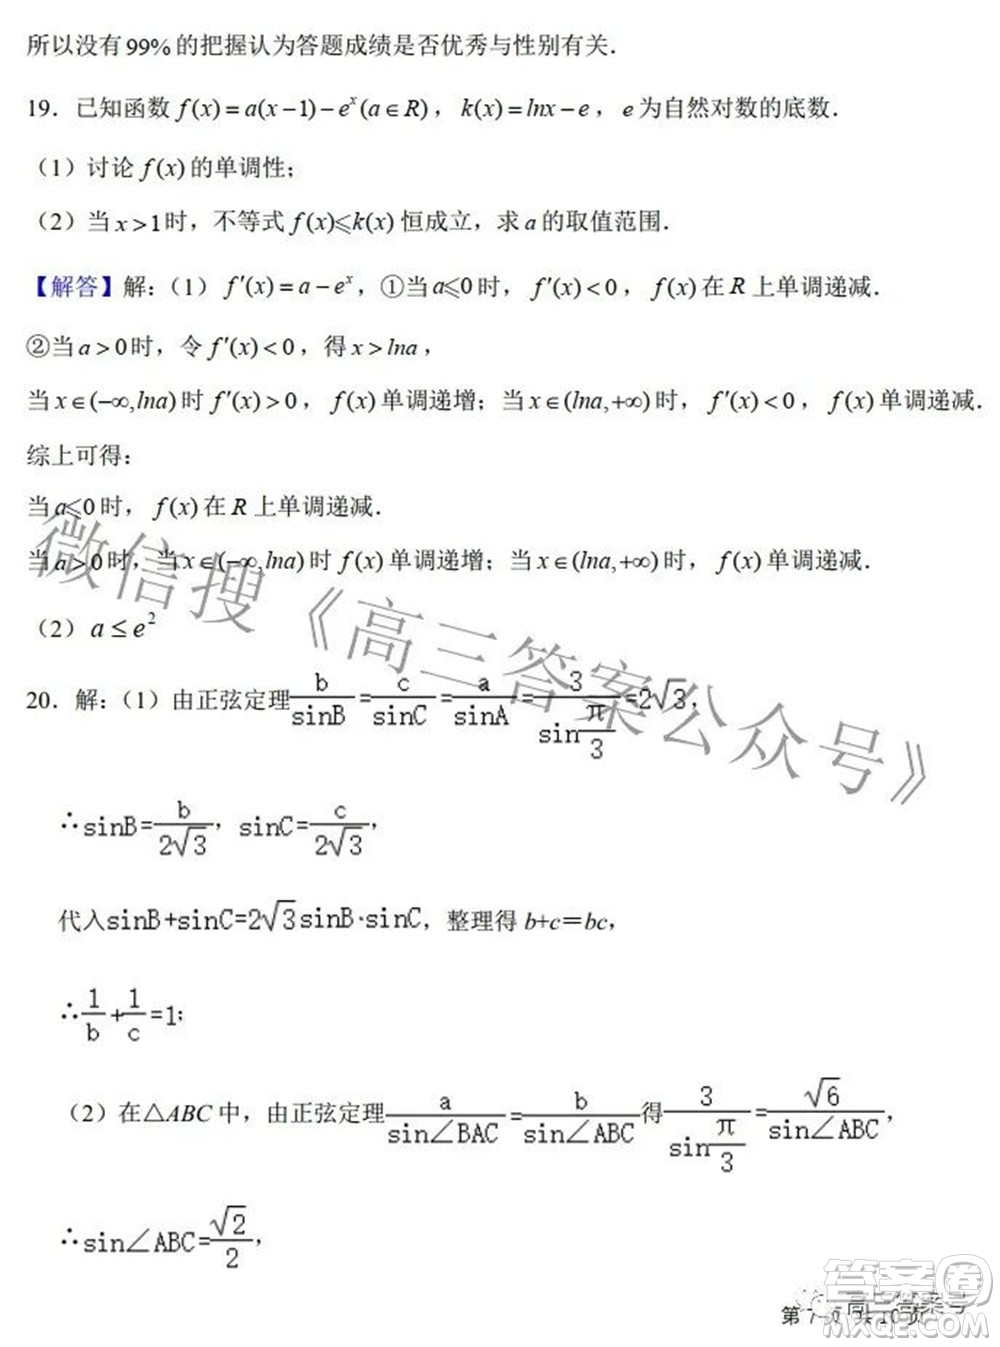 所以没有99%的把握认为答题成绩是否优秀与性别有关.
19. 已知函数 f(x)=a(x-1)-eˣ(a∈R), k(x)=lnx-e, e为自然对数的底数.
(1)讨论 f(x)的单调性;
(2)当x>1时,不等式 f(x)⩽k(x)恒成立,求a的取值范围.
【解答】解:(1) f′(x)=a-eˣ,①当a⩽0时, f′(x)<0, f(x)在R上单调递减.
②当a>0时,令 f′(x)<0,得x>lna,
当x∈(-∞,lna)时 f′(x)>0, f(x)单调递增;当x∈(lna,+∞)时, f′(x)<0, f(x)单调递减.
综上可得:
当a⩽0时, f(x)在R上单调递减.
当a>0时,当x∈(-∞,lna)时 f(x)单调递增;当x∈(lna,+∞)时, f(x)单调递减.
(2) a≤e²
20. 解:(1)由正弦定理 b/sinB=c/sinC=a/sinA=3/sin(π/3)=2√3,
∴sinB=b/2√3, sinC=c/2√3,
代入sinB+sinC=2√3sinB·sinC,整理得 b+c=bc,
∴1/b+1/c=1;
(2)在△ABC中,由正弦定理 a/sin∠BAC=b/sin∠ABC 得 3/sin(π/3)=√6/sin∠ABC,
∴sin∠ABC=√2/2,
微信搜《高三答案公众号》
答案圈
高三答案号
第 7 页 共 10 页